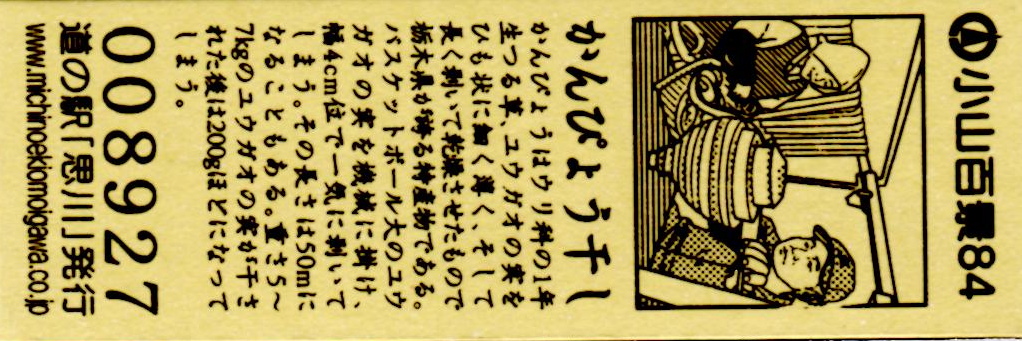 小山百景84
かんぴょう干し
かんぴょうはウリ科の1年
生つる草、ユウガオの実を
ひも状に細く薄く、そして
長く剥いて乾燥させたもので
栃木県が誇る特産物である。
バスケットボール大のユウ
ガオの実を機械に掛け、
幅4cm位で一気に剥いて
しまう。その長さは50mに
なることもある。重さ5〜
7kgのユウガオの実が干さ
れた後は200gほどになって
しまう。
008927
道の駅「思川」発行
www.michinoekiomoigawa.co.jp